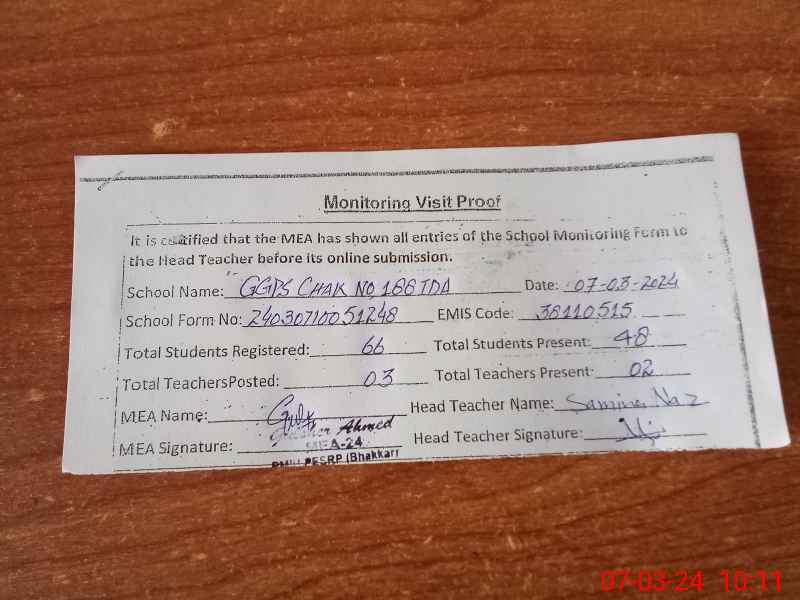 Monitoring Visit Proof
It is certified that the MEA has shown all entries of the School Monitoring Form to
the Head Teacher before its online submission.
School Name: GGPS CHAK NO, 166 TDA Date: 07-03-2024
School Form No: 24030710051248 EMIS Code: 38110515
Total Students Registered: 66 Total Students Present: 48
Total TeachersPosted: 03 Total Teachers Present: 02
MEA Name: Head Teacher Name: Samina Naz
Ahmed
MEA Signature: MEA-24 Head Teacher Signature:
PMIU PESRP (Bhakkar)
07-03-24 10:11